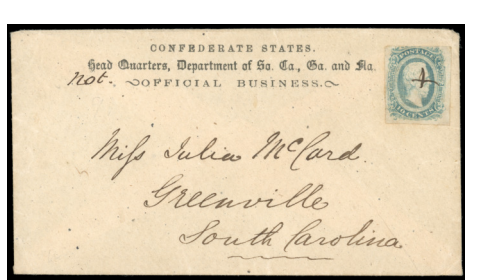 CONFEDERATE STATES.
Head Quarters, Department of So. Ca., Ga. and Fla.
Not. OFFICIAL BUSINESS.
POSTAGE
10 CENTS
Miss Julia McCord
Greenville
South Carolina